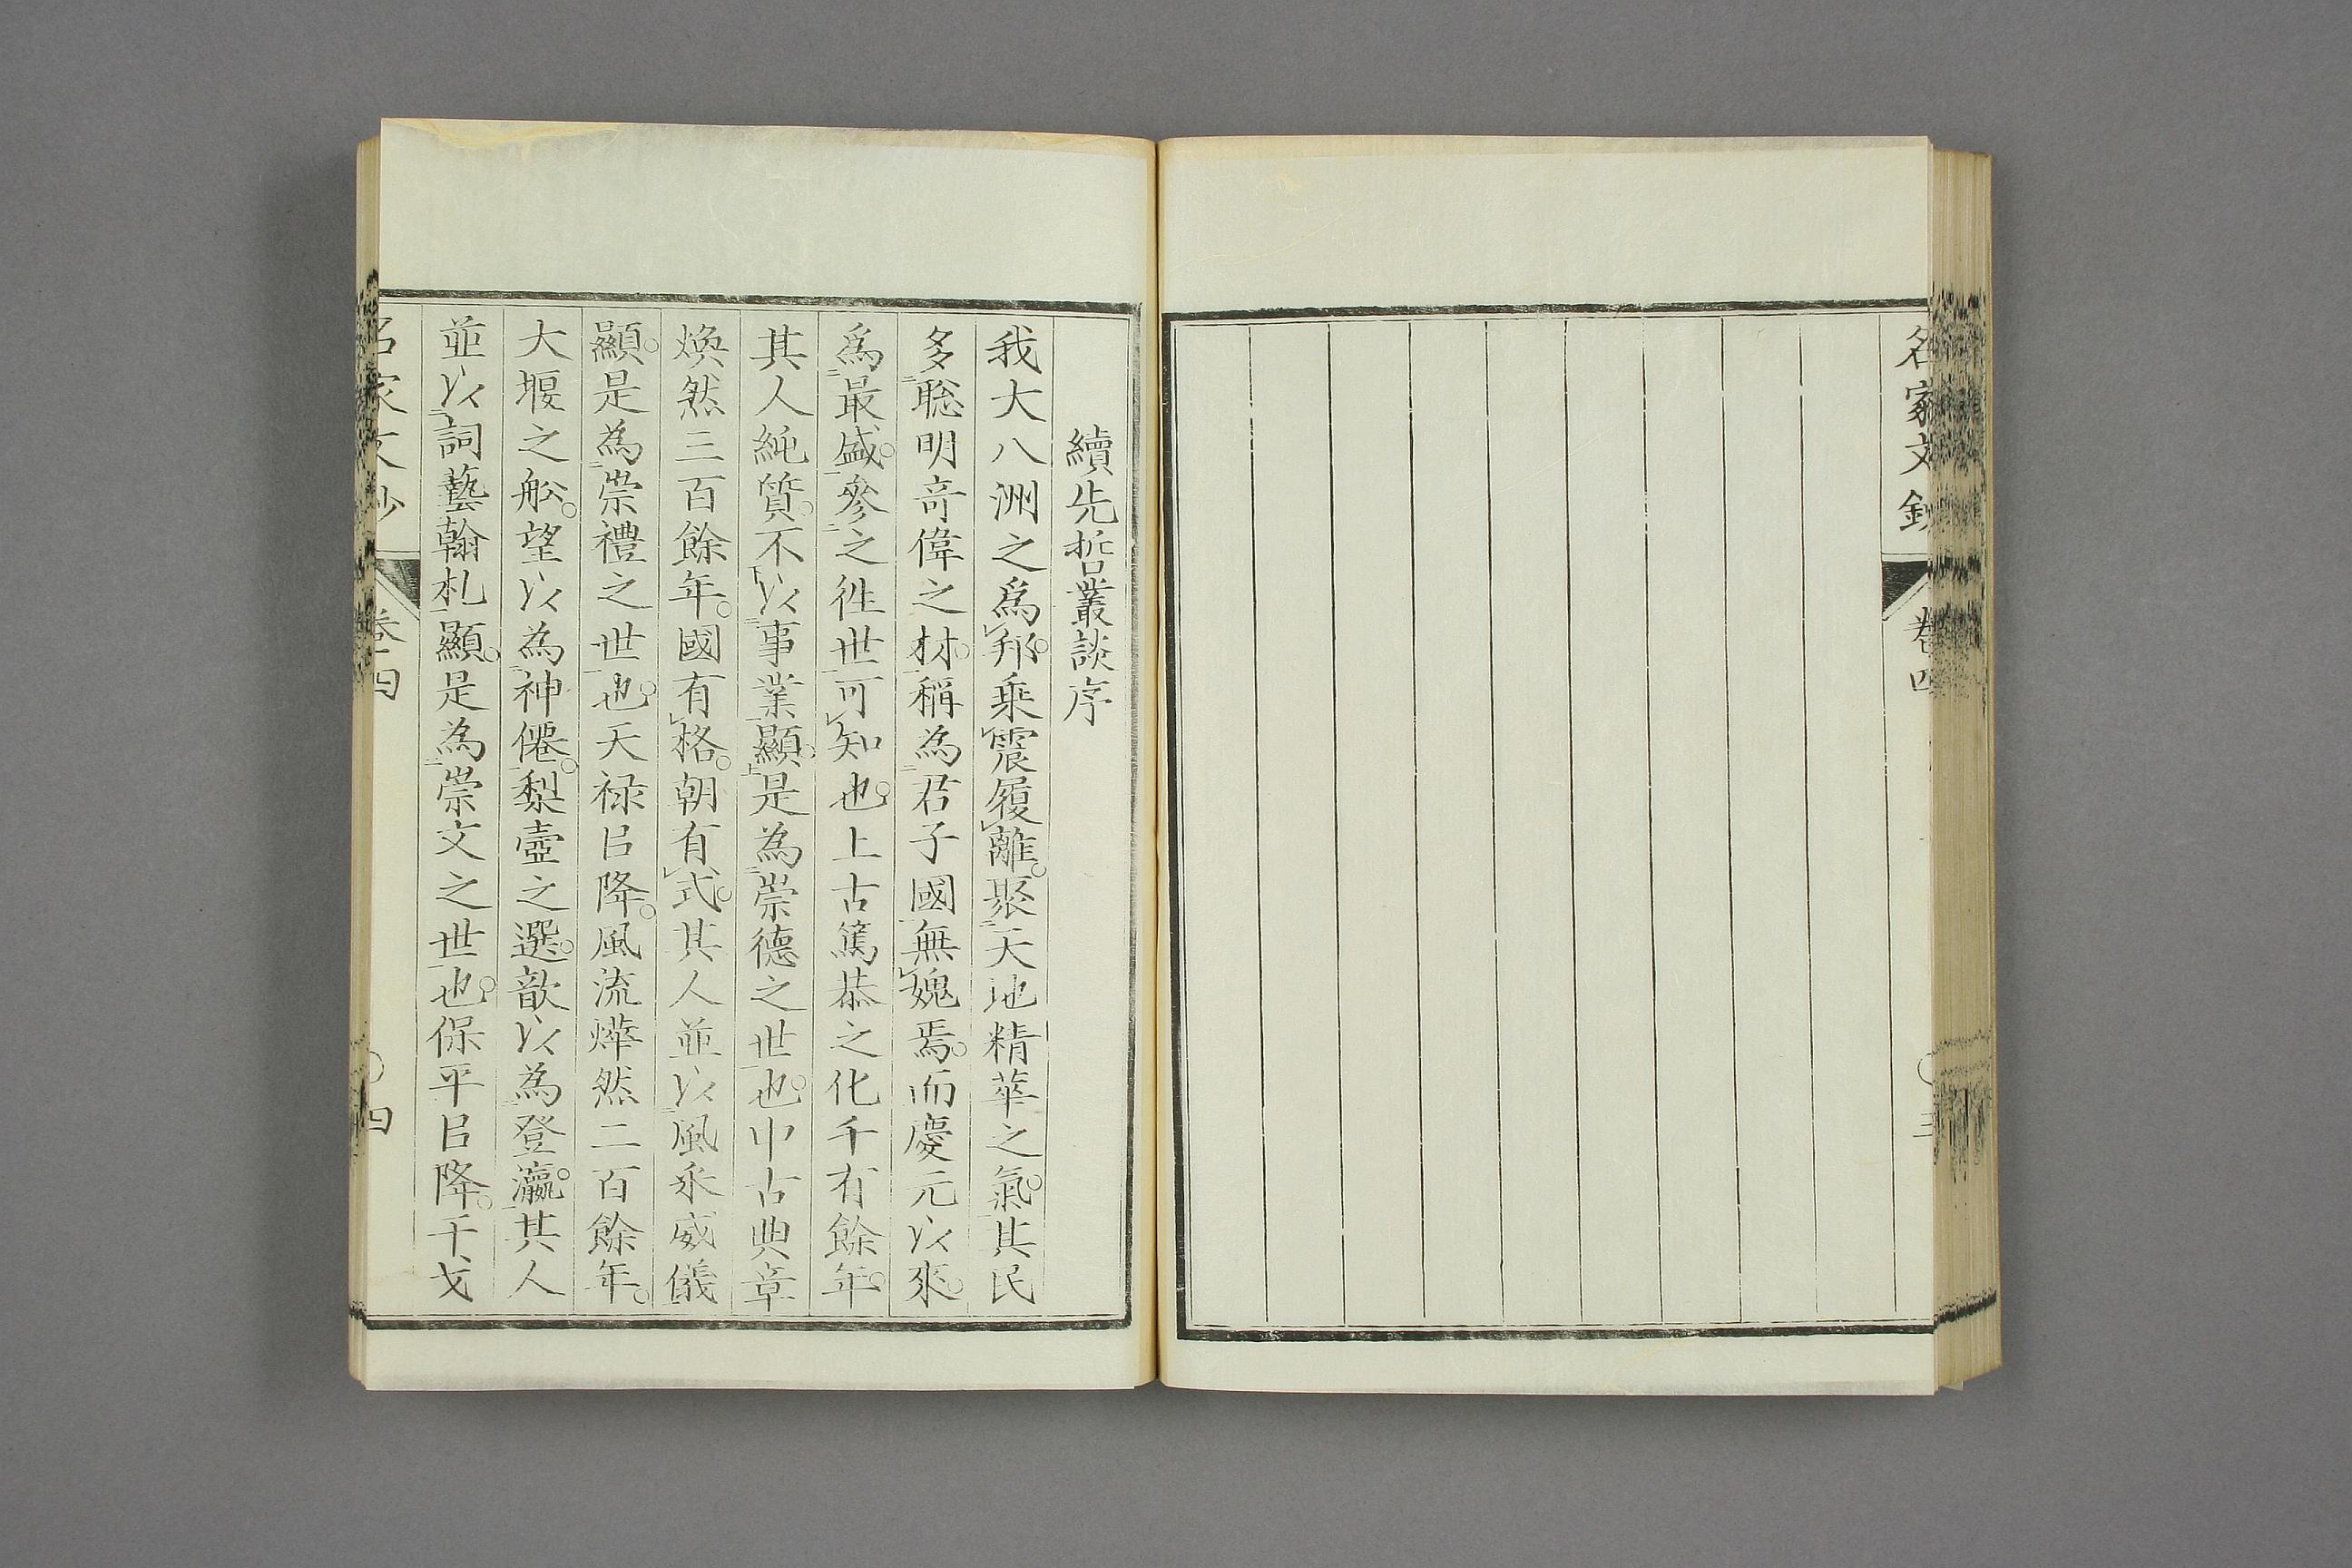 名家文鈔 卷四 三
續先哲叢談序
我大八洲之爲邦。乘震履離。聚天地精華之氣。其民
多聡明奇偉之材。稱為君子國無媿焉。而慶元以來。
爲最盛。參之徃世可知也。上古篤恭之化千有餘年。
其人純質。不以事業顯。是為崇德之世也。中古典章
煥然三百餘年。國有格。朝有式。其人並以風采威儀
顯。是為崇禮之世也。天禄㠯降。風流燁然二百餘年。
大堰之舩。望以為神僊。梨壺之選。歆以為登瀛。其人
並以詞藝翰札顯。是為崇文之世也。保平㠯降。干戈
名家文鈔 卷四 四